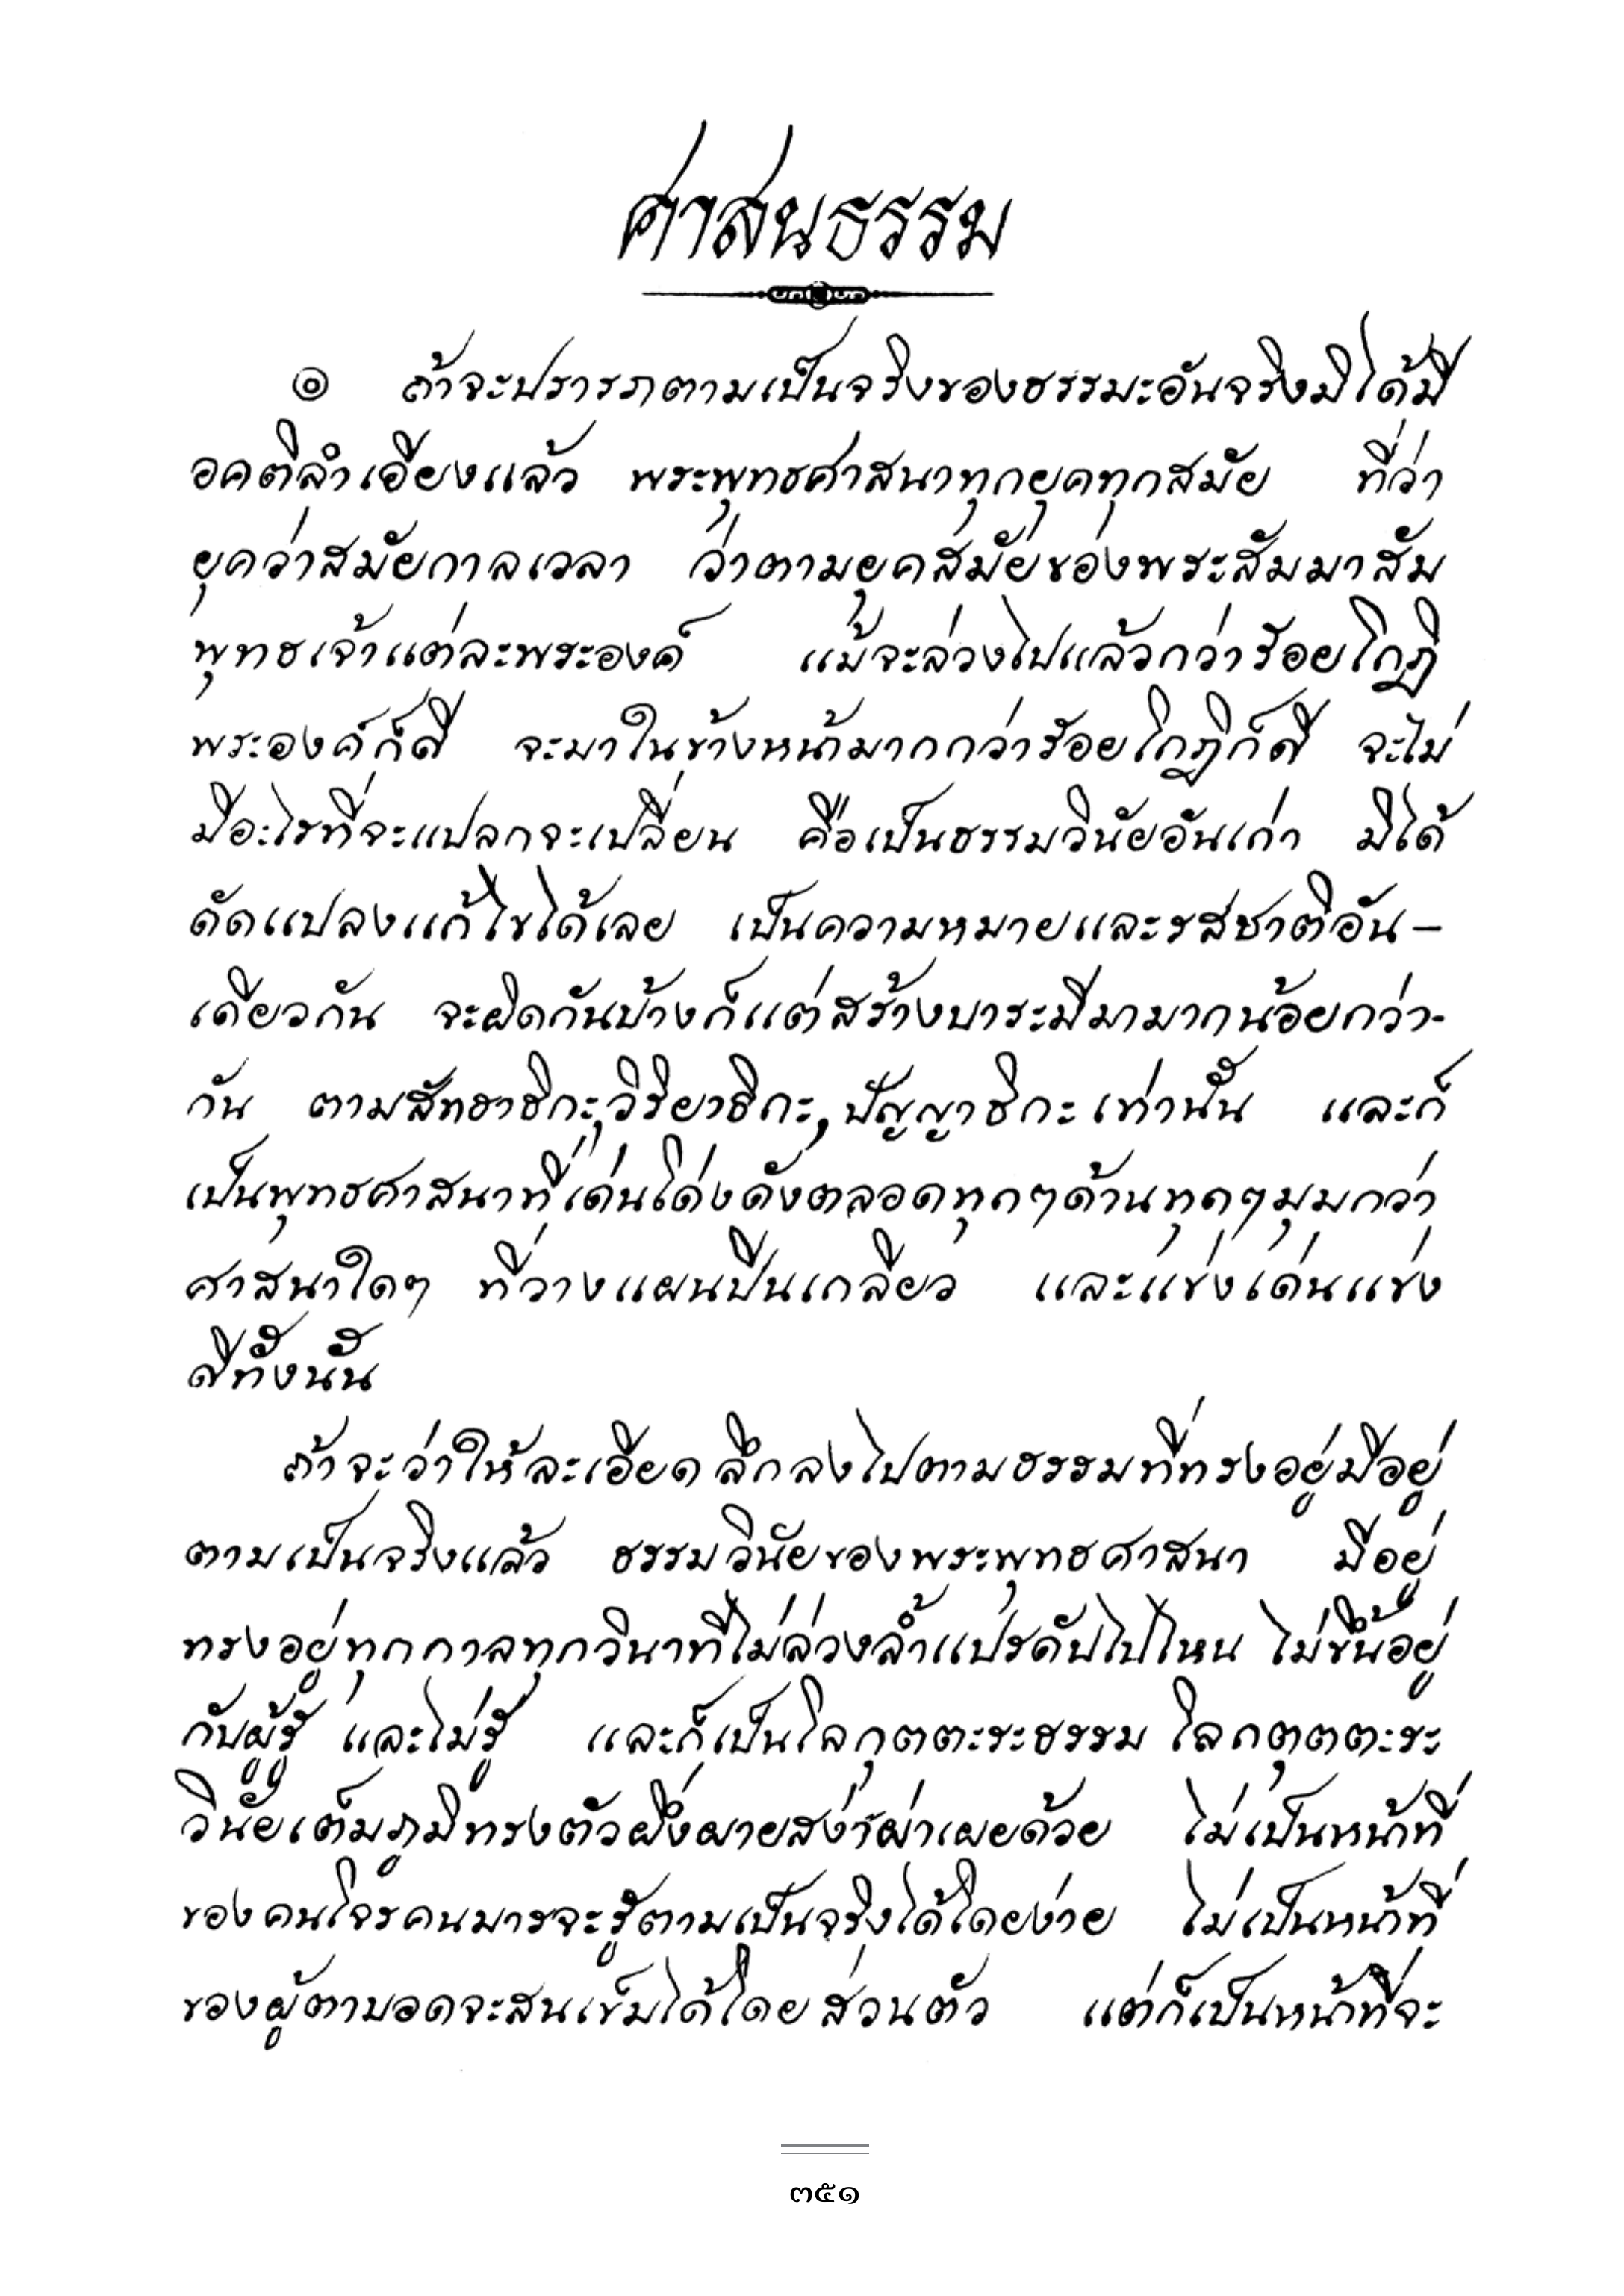 ศาสนธรรม
๏ ถ้าจะปรารภตามเป็นจริงของธรรมะอันจริงมิได้มี
อคติลำเอียงแล้ว พระพุทธศาสนาทุกยุคทุกสมัย ที่ว่า
ยุคว่าสมัยกาลเวลา ว่าตามยุคสมัยของพระสัมมาสัม
พุทธเจ้าแต่ละพระองค์ แม้จะล่วงไปแล้วกว่าร้อยโกฏิ
พระองค์ก็ดี จะมาในข้างหน้ามากกว่าร้อยโกฏิก็ดี จะไม่
มีอะไรที่จะแปลกจะเปลี่ยน คือเป็นธรรมวินัยอันเก่า มิได้
ดัดแปลงแก้ไขได้เลย เป็นความหมายและรสชาติอัน-
เดียวกัน จะผิดกันบ้างก็แต่สร้างบาระมีมามากน้อยกว่า-
กัน ตามสัทธาธิกะ,วิริยาธิกะ,ปัญญาธิกะเท่านั้น และก็
เป็นพุทธศาสนาที่เด่นโด่งดังตลอดทุกๆด้านทุกๆมุมกว่า
ศาสนาใดๆ ที่วางแผนปีนเกลียว และแข่งเด่นแข่ง
ดีทั้งนั้น
ถ้าจะว่าให้ละเอียดลึกลงไปตามธรรมที่ทรงอยู่มีอยู่
ตามเป็นจริงแล้ว ธรรมวินัยของพระพุทธศาสนา มีอยู่
ทรงอยู่ทุกกาลทุกวินาทีไม่ล่วงล้ำแปรดับไปไหน ไม่ขึ้นอยู่
กับผู้รู้ และไม่รู้ และก็เป็นโลกุตตะระธรรม โลกตุตตะระ
วินัยเต็มภูมิทรงตัวผึ่งผายสง่าผ่าเผยด้วย ไม่เป็นหน้าที่
ของคนโจรคนมารจะรู้ตามเป็นจริงได้โดยง่าย ไม่เป็นหน้าที่
ของผู้ตาบอดจะสนเข็มได้โดยส่วนตัว แต่ก็เป็นหน้าที่จะ
๓๕๑